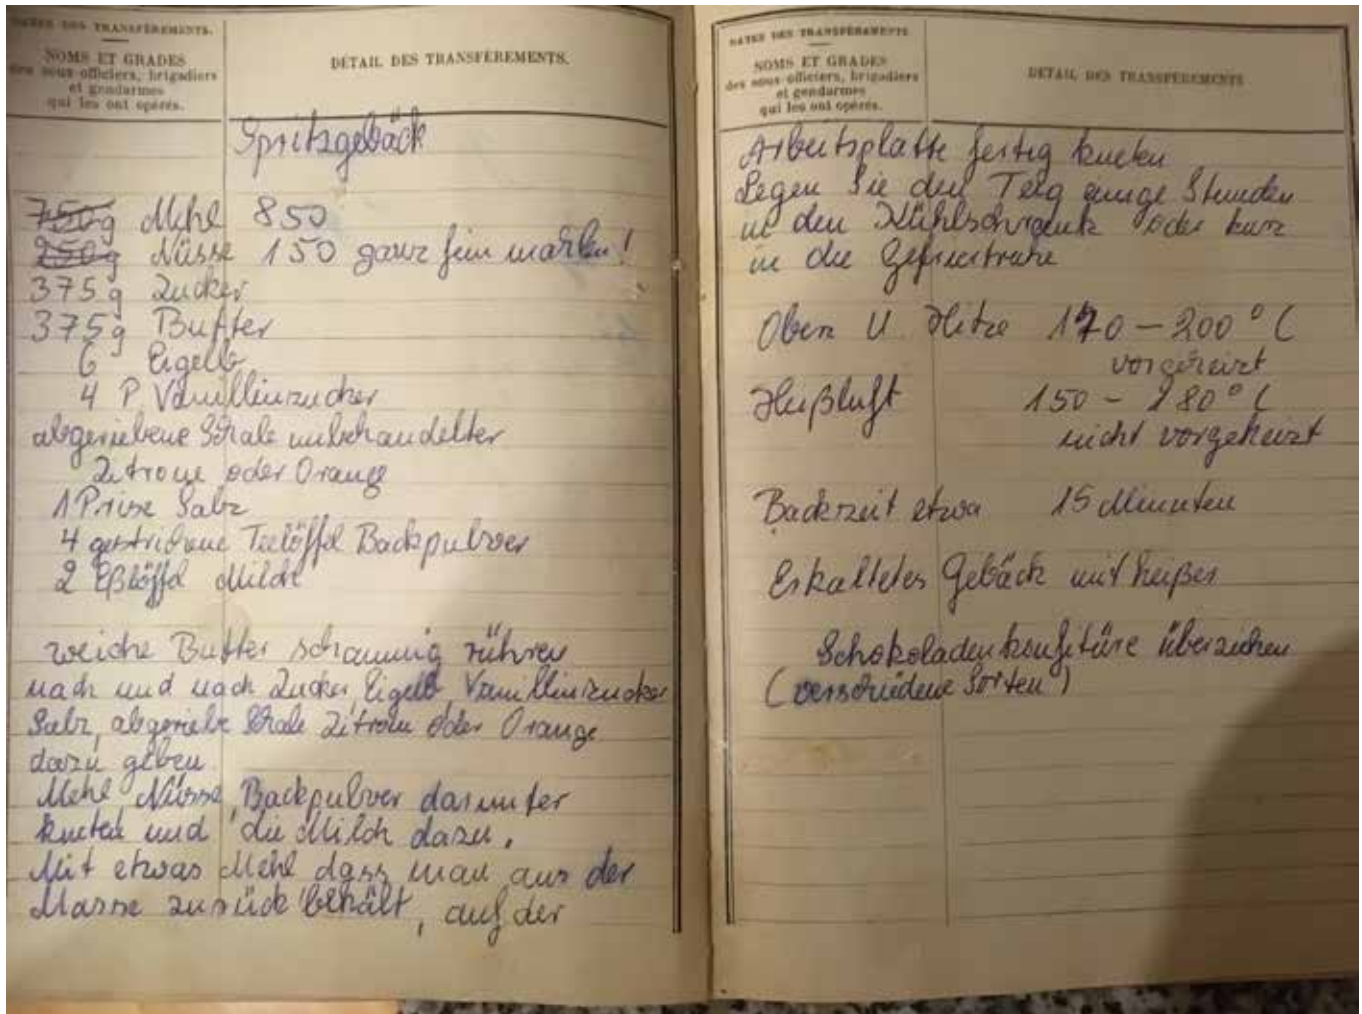 DATES DES TRANSFÈREMENTS.
NOMS ET GRADES
des sous-officiers, brigadiers
et gendarmes
qui les ont opérés.
DÉTAIL DES TRANSFÈREMENTS.
Spritzgebäck
750g Mehl 850
250g Nüsse 150 ganz fein mahlen!
375g Zucker
375g Butter
6 Eigelb
4 P Vanillinzucker
abgeriebene Schale unbehandelter
Zitrone oder Orange
1 Prise Salz
4 gestrichene Teelöffel Backpulver
2 Eßlöffel Milch
weiche Butter schaumig rühren
nach und nach Zucker, Eigelb, Vanillinzucker
Salz, abgeriebe Schale Zitrone oder Orange
dazu geben
Mehl Nüsse, Backpulver darunter
kneten und die Milch dazu.
Mit etwas Mehl dass man aus der
Masse zurück behält, auf der
DATES DES TRANSFÈREMENTS
NOMS ET GRADES
des sous-officiers, brigadiers
et gendarmes
qui les ont opérés.
DÉTAIL DES TRANSFÈREMENTS
Arbeitsplatte fertig kneten
Legen Sie den Teig einige Stunden
in den Kühlschrank oder kurz
in die Gefriertruhe
Oben U. Hitze 170 - 200° C
vorgeheizt
Heißluft 150 - 180° C
nicht vorgeheizt
Backzeit etwa 15 Minuten
Erkaltetes Gebäck mit heißer
Schokoladenkonfitüre überziehen
(verschiedene Sorten)